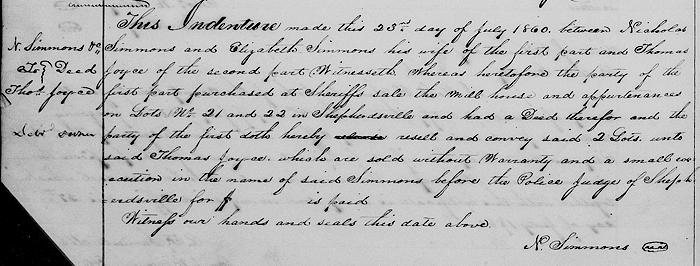 This Indenture made this 23rd day of July 1860. between Nicholas
N. Simmons &c
Simmons and Elizabeth Simmons his wife of the first part and Thomas
To } Deed
Joyce of the second part Witnesseth. Whereas heretofore the party of the
Thos. Joyce
first part purchased at Sheriffs sale the Mill house and appurtenances
on Lots No. 21 and 22 in Shepherdsville and had a Deed therefor and the
party of the first doth hereby resell and convey said 2 Lots. unto
said Thomas Joyce. which are sold without Warranty and a small ex
ecution in the name of said Simmons before the Police Judge of Sheph
erdsville for $ is paid
Witness our hands and seals this date above.
N. Simmons